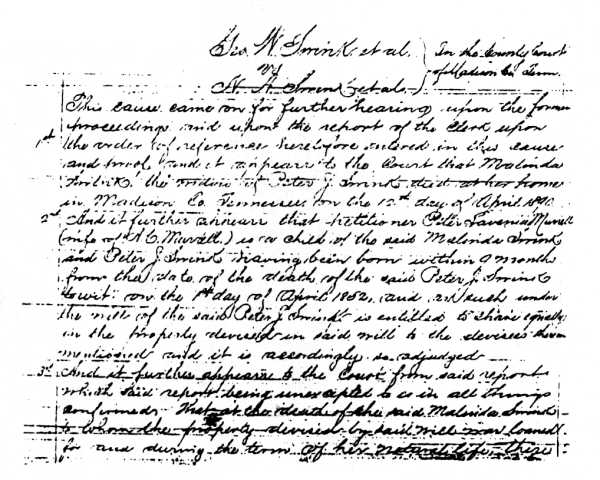 Geo. W. Swink et al. ) In the County Court
vs ) of Madison Co. Tenn.
H. A. Swink et al. )
This cause came on for further hearing upon the former
proceedings and upon the report of the Clerk upon
1st the order of reference heretofore entered in this cause
and proof, and it appears to the Court that Malinda
Swink, the widow of Peter J. Swink died at her home
in Madison Co. Tennessee on the 12th day of April
2nd And it further appears that petitioner Peter Lavenia Murrell
(wife of A. C. Murrell.) is a child of the said Malinda Swink
and Peter J. Swink having been born within 9 months
from the date of the death of the said Peter J. Swink
towit: on the 1st day of April 1852, and as such under
the will of the said Peter J. Swink is entitled to share equally
in the property devised in said will to the devisees therein
mentioned and it is accordingly so adjudged
3rd And it further appears to the Court from said report
which said report being unexcepted to is in all things
confirmed: That at the death of the said Malinda Swink
to whom the property devised by said will was loaned
for and during the term of her natural life, there